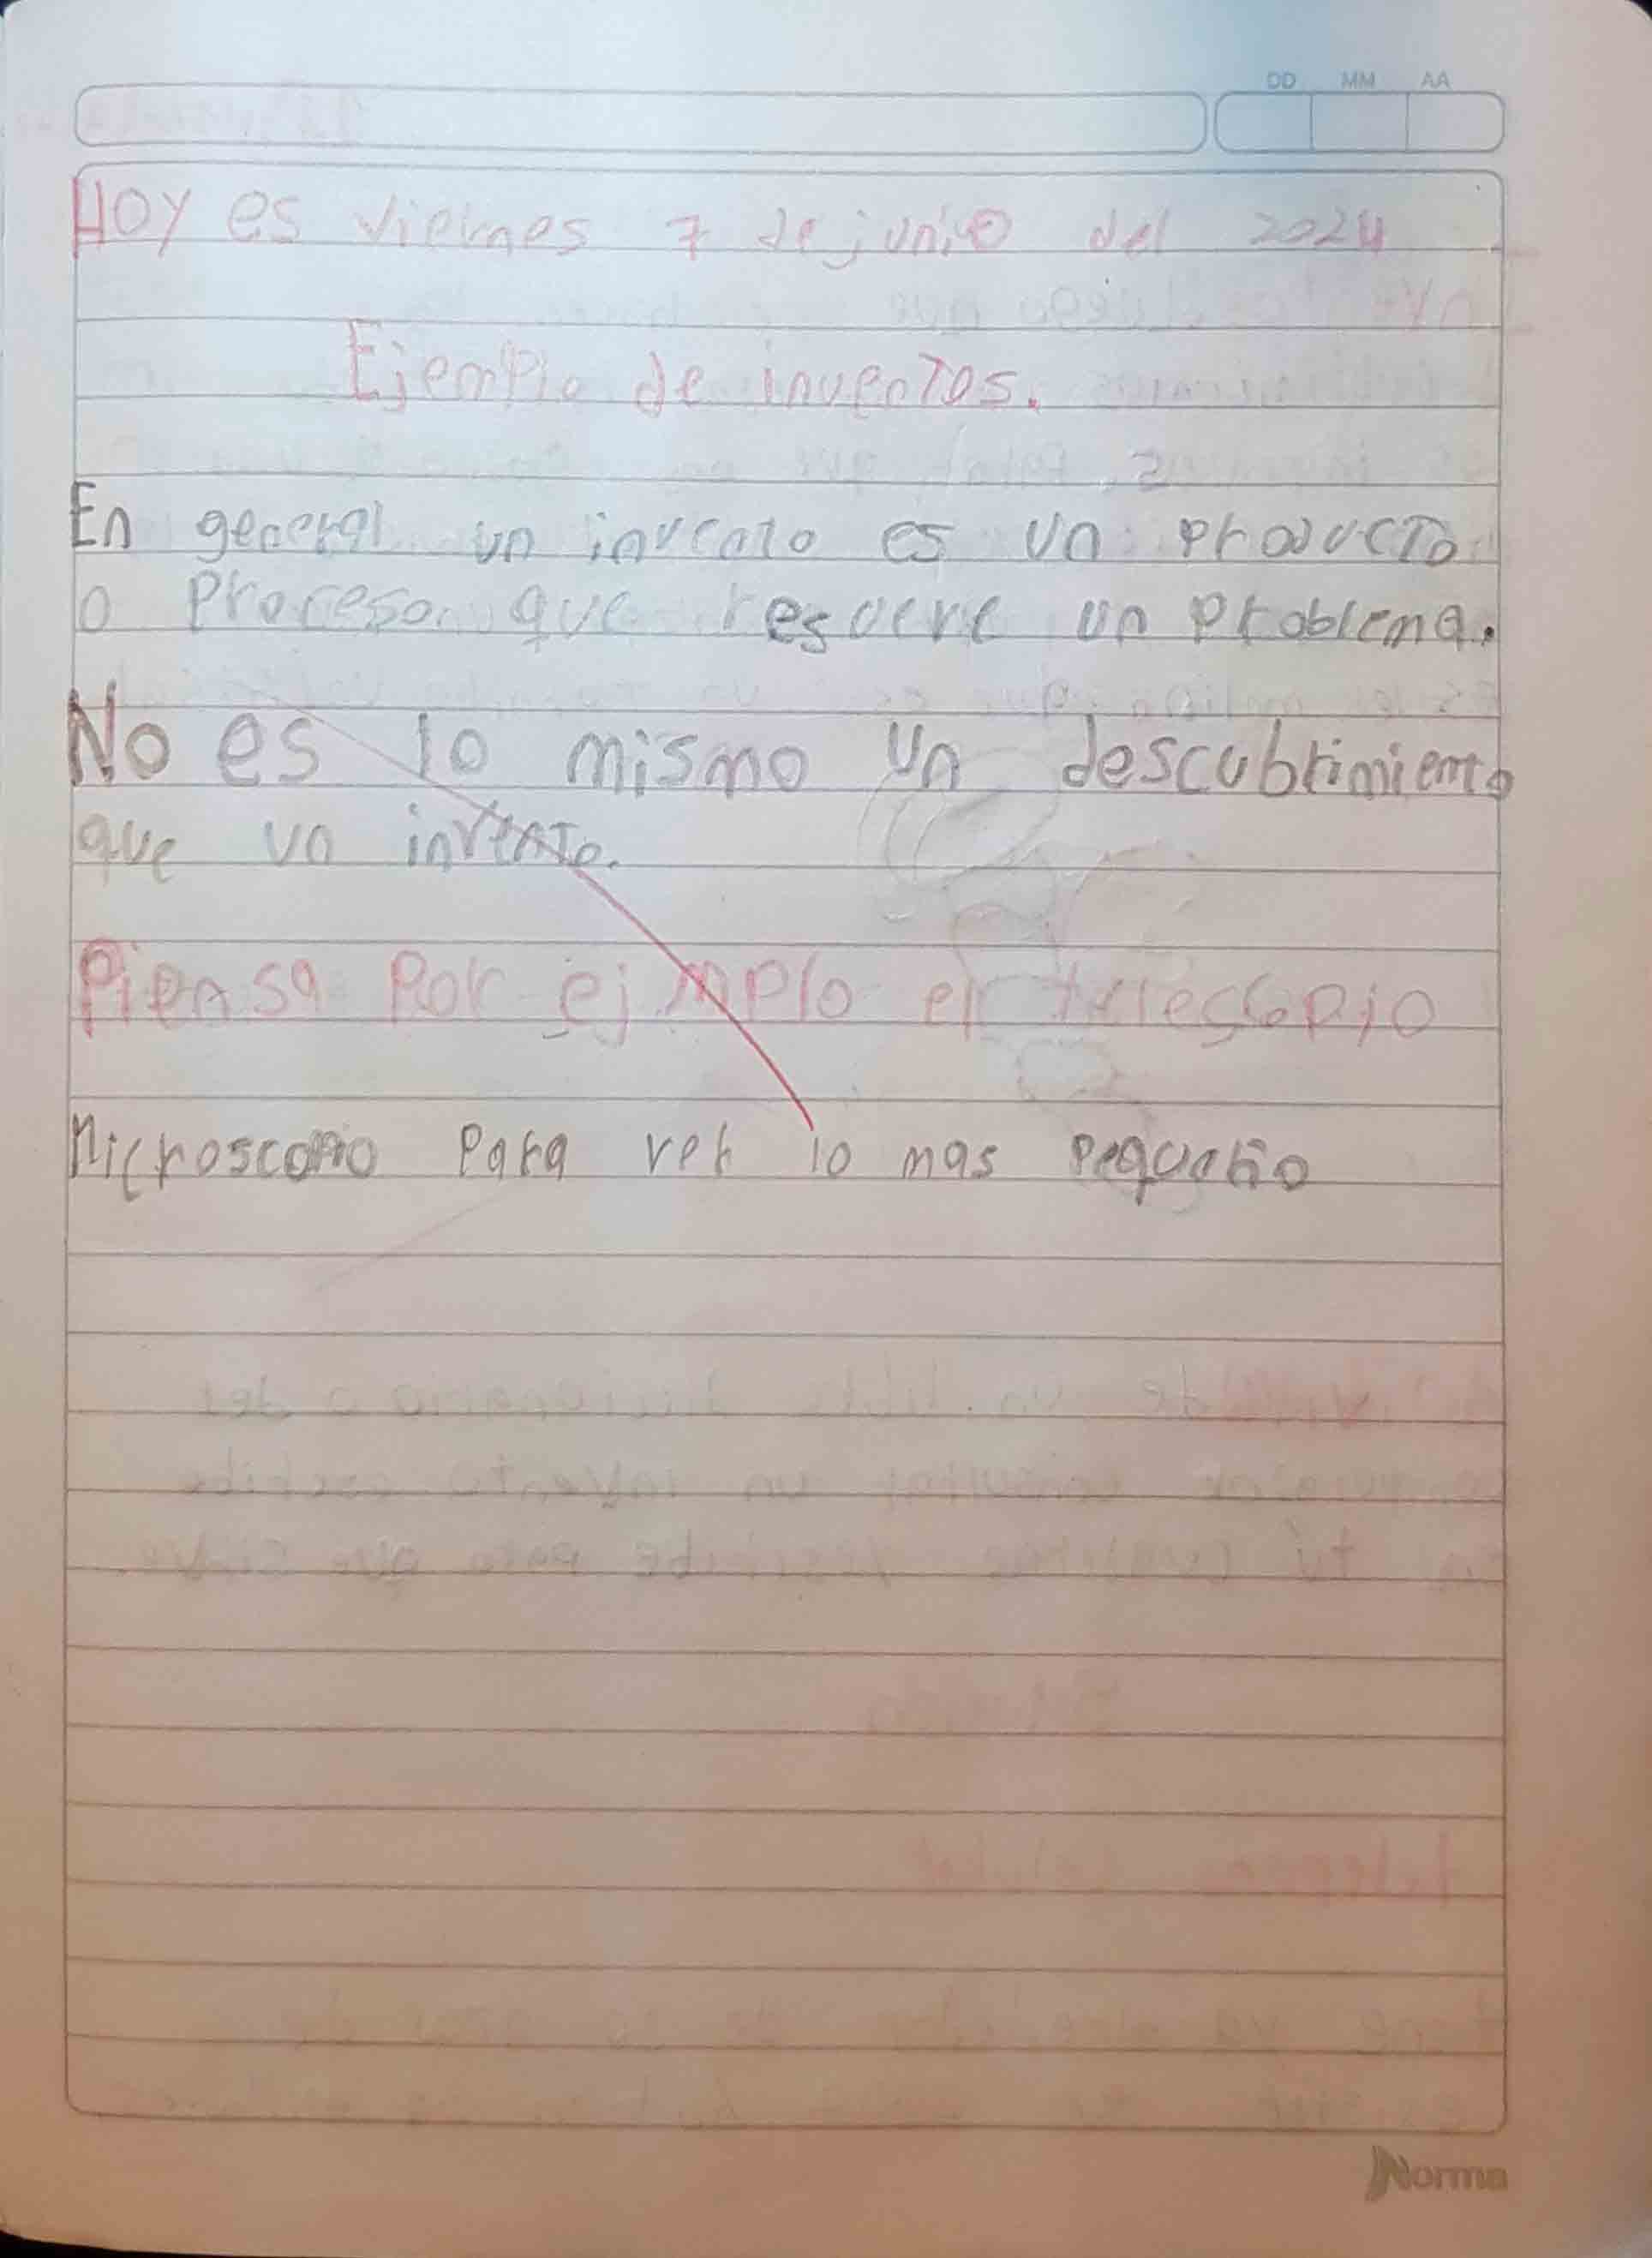 DD MM AA
Hoy es viernes 7 de junio del 2024
Ejemplo de inventos.
En general un invento es un producto
o proceso que resuerve un problema.
No es lo mismo un descubrimiento
que un invento.
Piensa por ejmplo el telescopio
Microscopio para ver lo mas pequeño
Norma